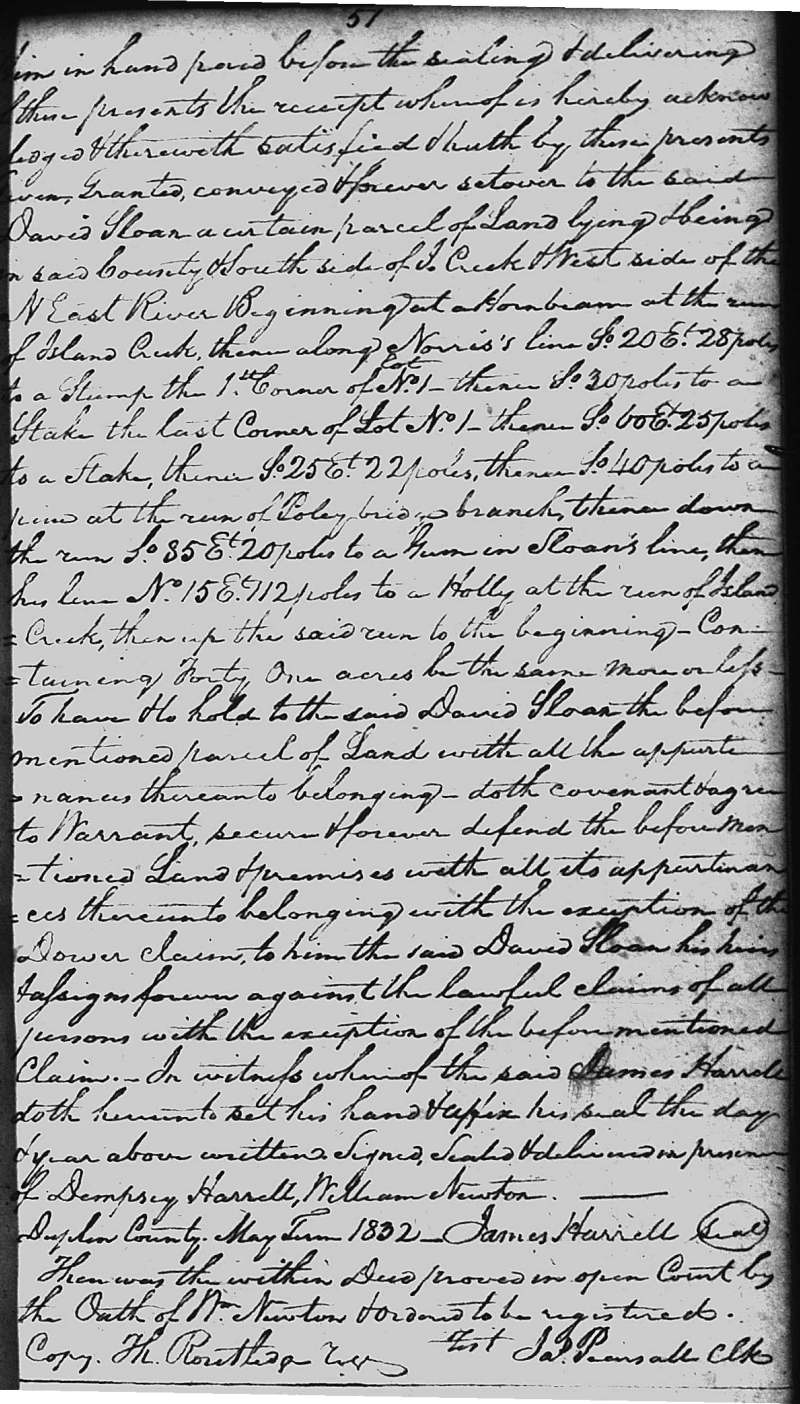 51
him in hand paid before the sealing & delivering
of these presents the receipt whereof is hereby acknow
ledged & therewith satisfied & hath by these presents
Given, Granted, conveyed & forever setover to the said
David Sloan a certain parcel of Land lying & being
in said County & South side of I. Creek & West side of the
N East River Beginning at a Hornbeam at the run
of Island Creek, thence along Norris's line So. 20 Et. 28 poles
to a Stump the 1st. Corner of Lot No. 1 - thence So. 30 poles to a
Stake the last Corner of Lot No. 1 - thence So. 60 Et. 25 poles
to a Stake, thence So. 25 Et. 22 poles, thence So. 40 poles to a
pine at the run of Poley bridge branch, thence down
the run So. 85 Et. 20 poles to a Gum in Sloan's line, then
his line No. 15 Et. 112 poles to a Holly at the run of Island
= Creek, then up the said run to the beginning - Con-
= taining Forty One acres be the same more or less -
To have & to hold to the said David Sloan the before
mentioned parcel of Land with all the appurte
= nances thereunto belonging - doth covenant & agree
to Warrant, secure & forever defend the before men
= tioned Land & premises with all its appurtenan
= ces thereunto belonging with the exception of the
Dower claim, to him the said David Sloan his heirs
& assigns forever against the lawful claims of all
persons with the exception of the before mentioned
Claim. - In witness whereof the said James Harrell
doth hereunto set his hand & affix his seal the day
& year above written. Signed, Sealed & delivered in presence
of Dempsey Harrell, William Newton.
Duplin County. May Term 1832 - James Harrell Seal
Then was the within Deed proved in open Court by
the Oath of Wm. Newton & ordered to be registered.
Copy. Th. Routledge Regr Test Jas. Pearsall Clk